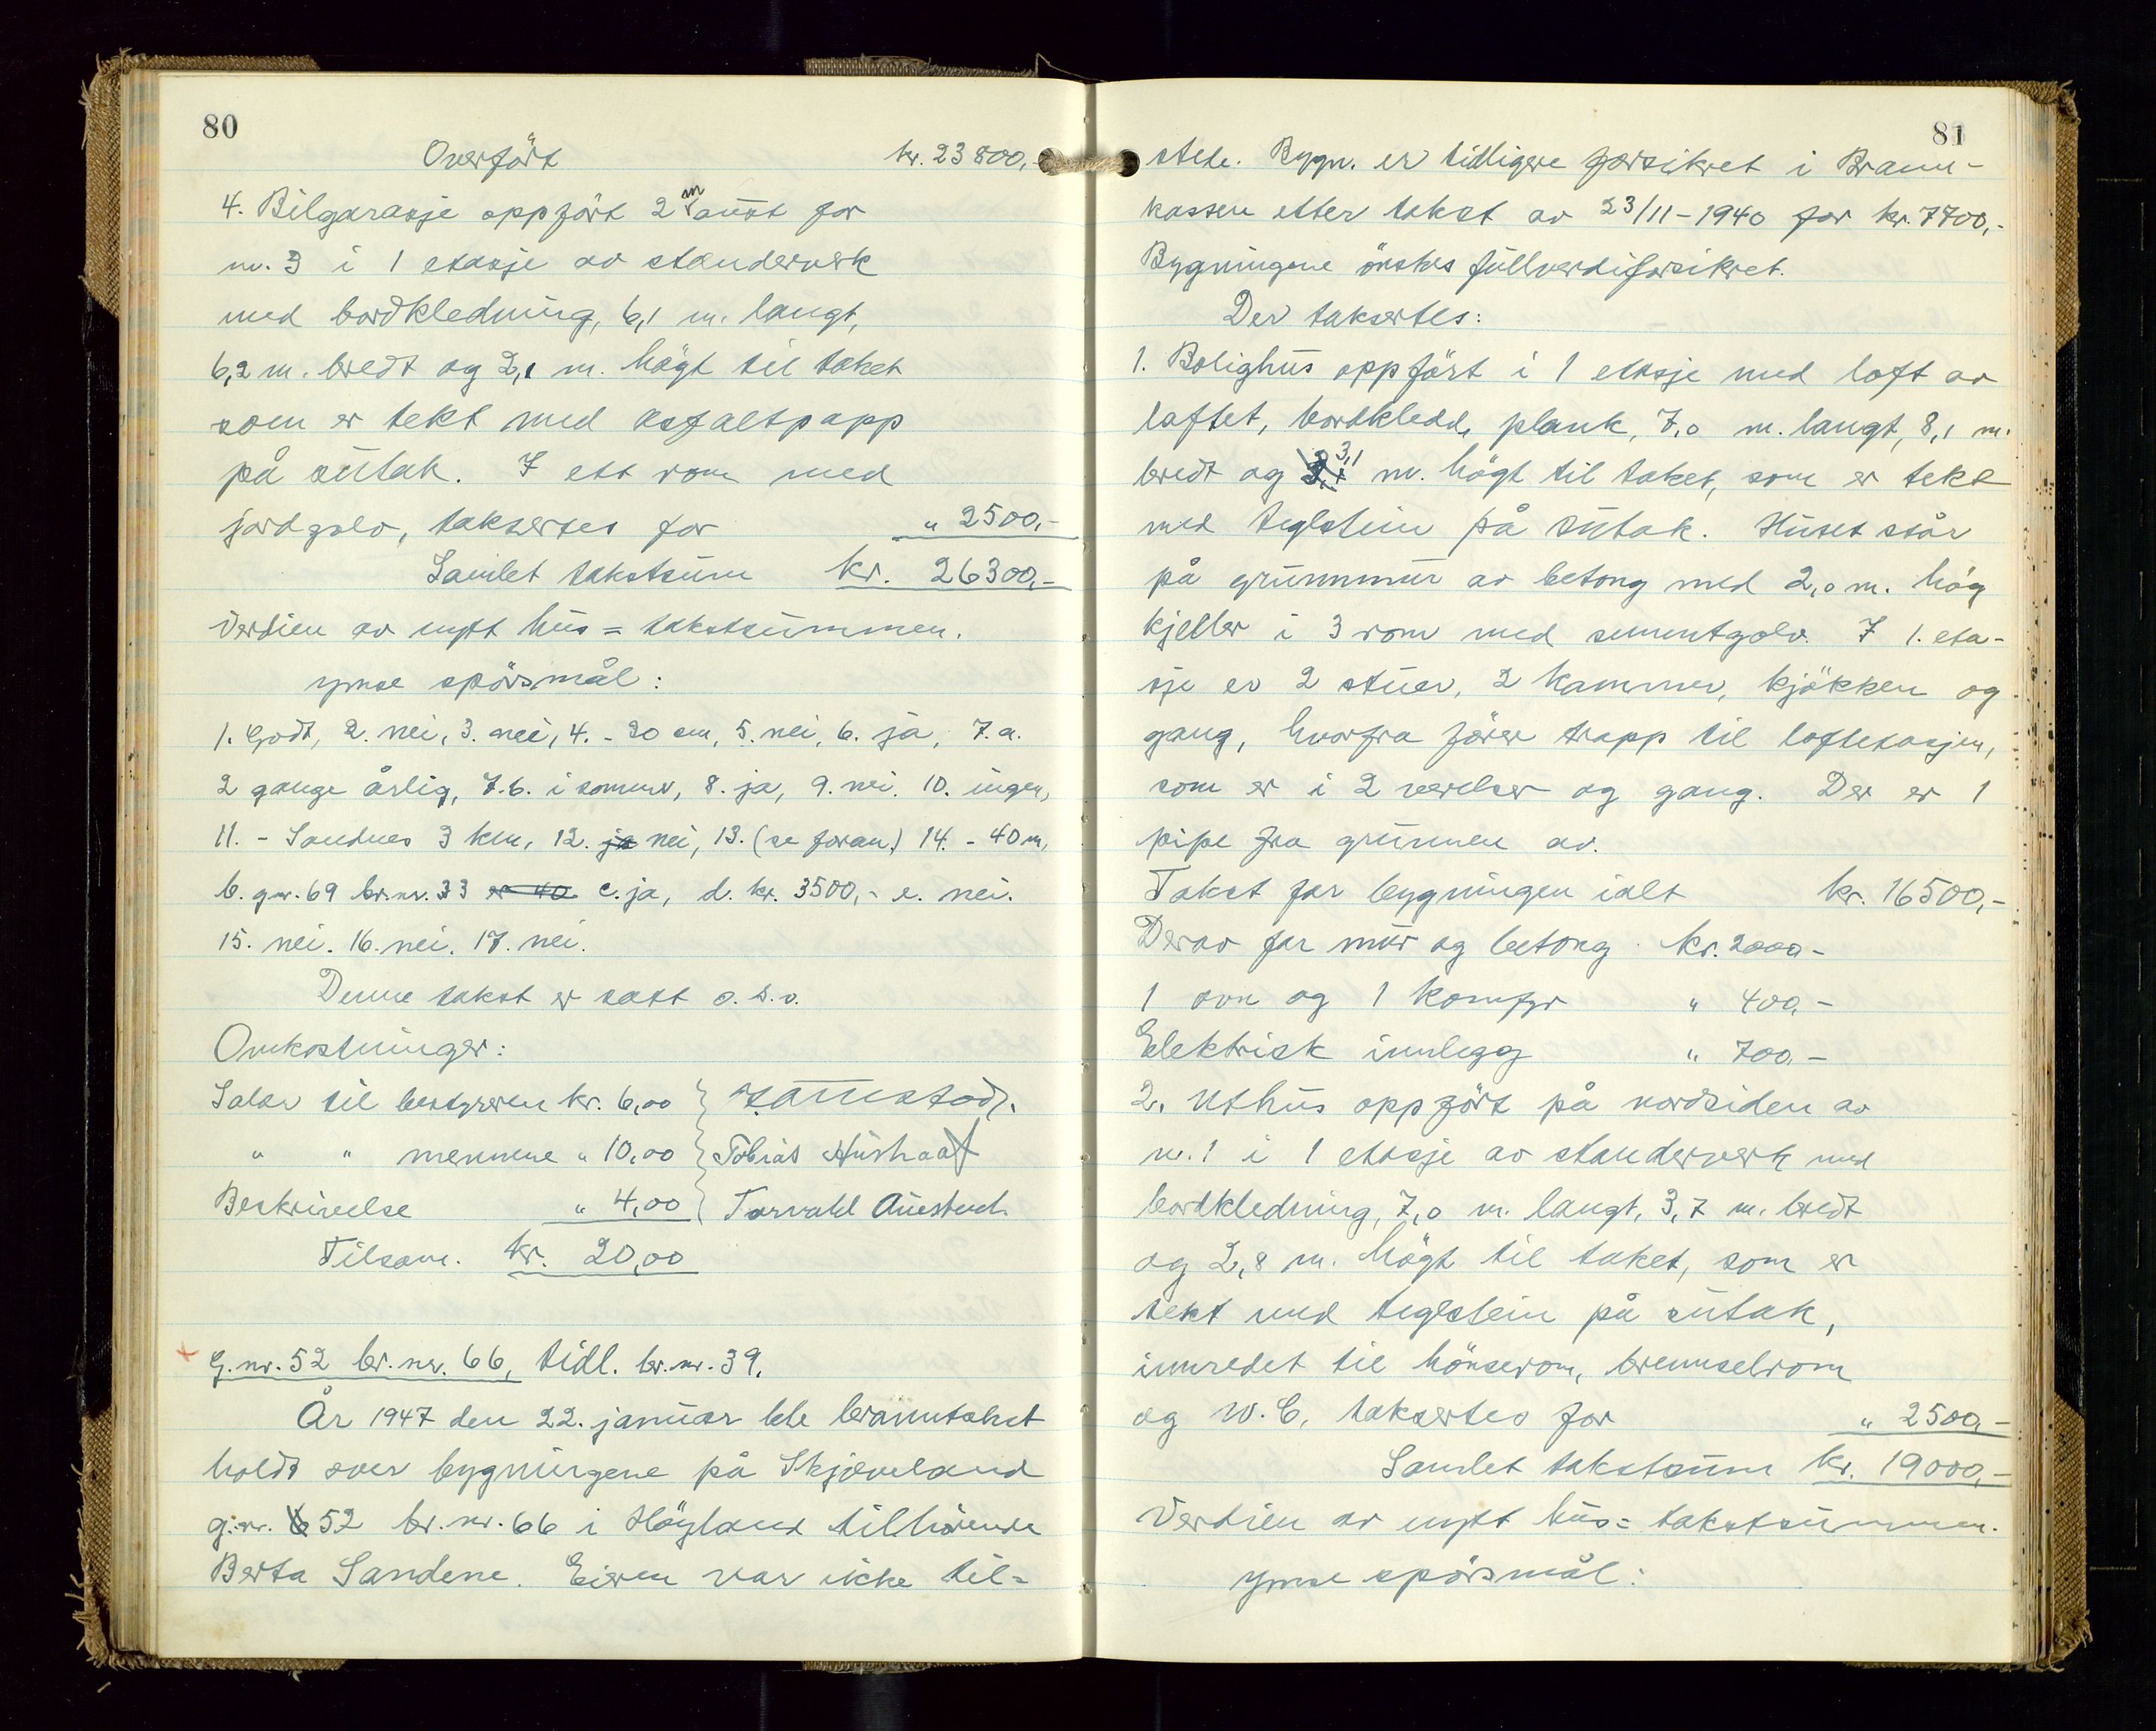 80
Overført kr. 23 800,-
4. Bilgarasje oppført 2 m aust for
nr. 3 i 1 etasje av standerverk
med bordkledning, 6,1 m. langt,
6,2 m. bredt og 2,1 m. högt til taket
som er tekt med asfaltpapp
på sutak. I ett rom med
jordgolv, takseres for " 2500,-
Samlet takstsum kr. 26300,-
Verdien av nytt hus = takstsummen.
Ymse spörsmål:
1. Godt, 2. nei, 3. nei, 4. - 20 cm, 5. nei, 6. ja, 7. a.
2 gange årlig, 7. b. i sommer, 8. ja, 9. nei, 10. ingen,
11. - Sandnes 3 km, 12. ja nei, 13. (se foran) 14. - 40 m,
b. g.nr. 69 br.nr. 33 er 40 c. ja, d. kr. 3500,- e. nei.
15. nei. 16. nei. 17. nei.
Denne takst er satt o. s. v.
Omkostninger:
Salær til bestyreren kr. 6,00
" " mennene " 10,00 Tobias
Beskrivelse " 4,00 Torvald Austvoll
Tilsam. kr. 20,00
G.nr. 52 br.nr. 66, tidl. br.nr. 39.
År 1947 den 22. januar ble branntakst
holdt over bygningene på Skjæveland
g.nr. 52 br.nr. 66 i Höyland tilhörende
Berta Sandene. Eieren var ikke til-
81
stede. Bygn. er tidligere forsikret i Brann-
kassen etter takst av 23/11-1940 for kr. 7700,-
Bygningene önskes fullverdiforsikret.
Der taksertes:
1. Bolighus oppfört i 1 etasje med loft av
laftet, bordkledd, plank, 7,0 m. langt, 8,1 m.
bredt og 3,1 m. högt til taket, som er tekt
med teglstein på sutak. Huset står
på grunnmur av betong med 2,0 m. hög
kjeller i 3 rom med sementgolv. I 1. eta-
sje er 2 stuer, 2 kammer, kjökken og
gang, hvorfra förer trapp til loftetasjen,
som er i 2 værelser og gang. Der er 1
pipe fra grunnen av.
Takst for bygningen ialt kr. 16500,-
Derav for mur og betong kr. 2000,-
1 ovn og 1 komfyr " 400,-
Elektrisk innlegg " 700,-
2. Uthus oppfört på nordsiden av
nr. 1 i 1 etasje av standerverk med
bordkledning, 7,0 m. langt, 3,7 m. bredt
og 2,8 m. högt til taket, som er
tekt med teglstein på sutak,
innredet til hönserom, brenselrom
og W.C, taksertes for " 2500,-
Samlet takstsum kr. 19000,-
Verdien av nytt hus = takstsummen.
Ymse spörsmål: